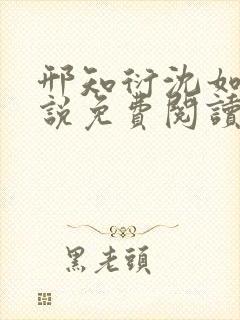 邢知衍沈如
說免費閱讀
黑老頭